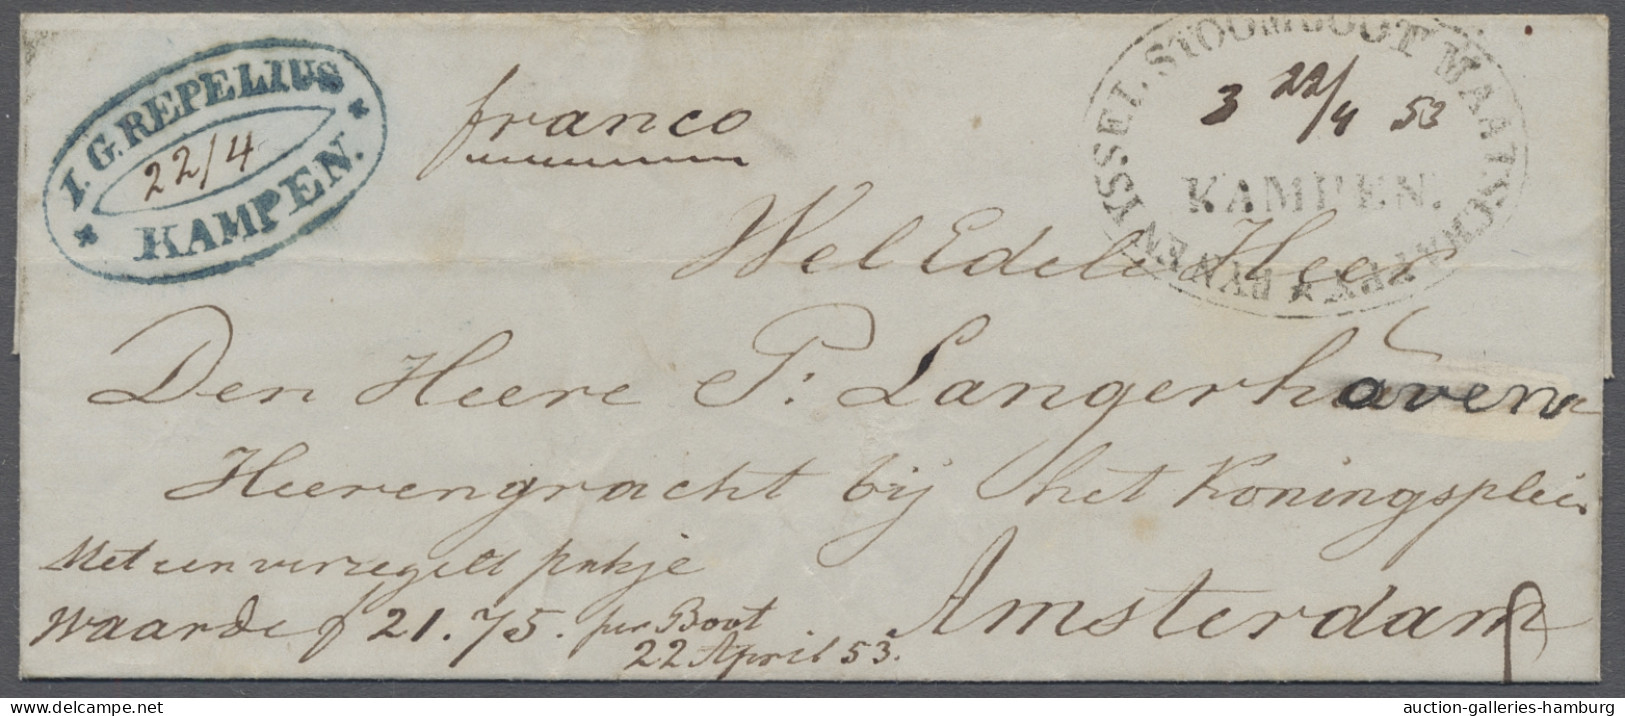 I. G. REPELIUS
22/4
KAMPEN.
franco
RYN EN YSSEL STOOMBOOT MAATSCHAPPY
3 22/4 53
KAMPEN.
Wel Edele Heer
Den Heere P. Langerhaven
Heerengracht bij het Koningsplein
Met een verzegeld pakje
waarde f 21.75. per Boot
22 April 53.
Amsterdam
delcampe.net
auction-galleries-hamburg